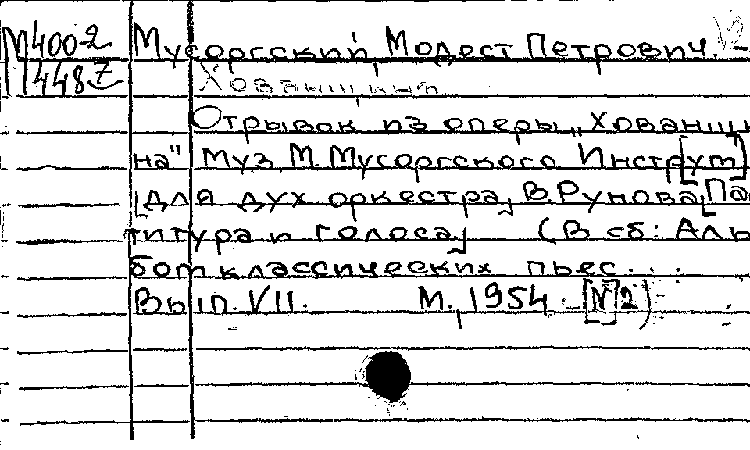 М400-2 Мусоргский, Модест Петрович. -
П448 Z Хованщина
Отрывок из оперы „Хованщи
на" Муз. М. Мусоргского Инстр[ут]
[для дух оркестра] В. Рунова [Пар
титура и голоса] (В сб: Аль
бом классических пьес...
Вып. VII. М., 1954. [N2])